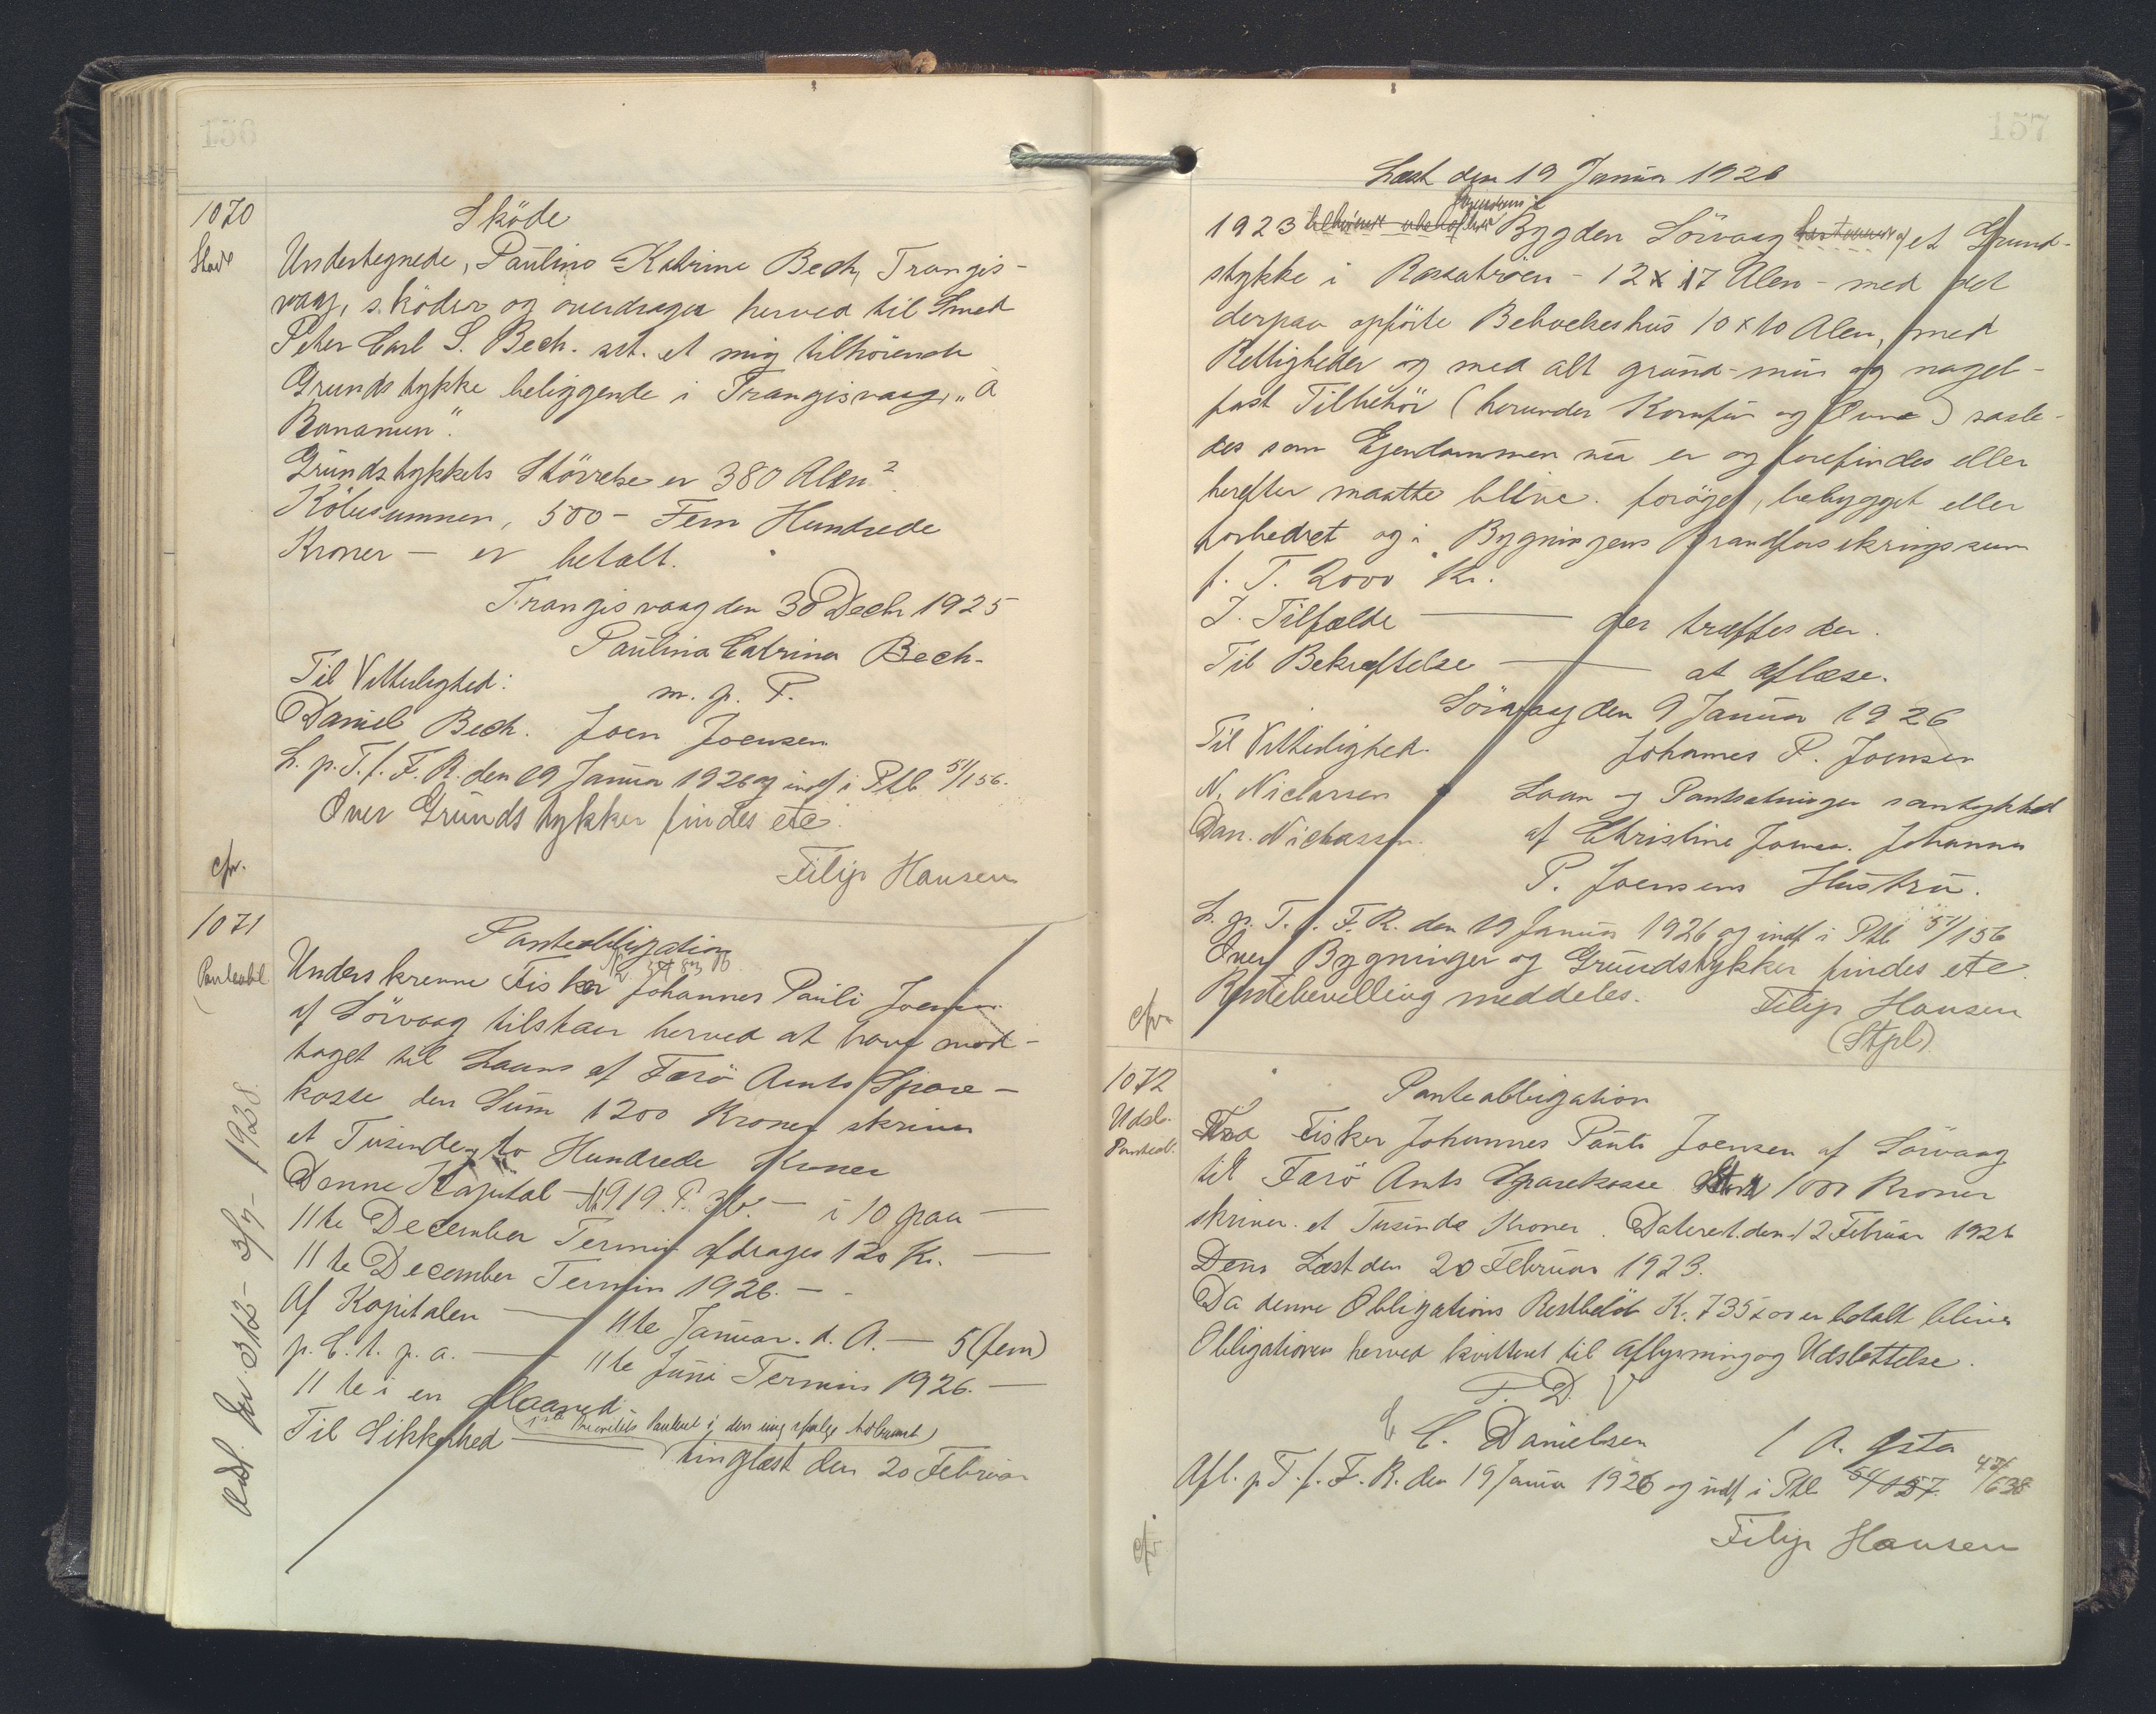 156
1070
Sköde
Undertegnede, Paulina Katrine Bech, Trangis-
vaag, sköder og overdrager herved til Smed
Peter Carl S. Bech. sst. et mig tilhörende
Grundstykke beliggende i Trangisvaag, „á
Bananum“.
Grundstykkets Störrelse er 380 Alen².
Köbesummen, 500 – Fem Hundrede
Kroner – er betalt.
Trangisvaag den 30 Decbr 1925
Paulina Catrina Bech.
m. p. P.
Til Vitterlighed:
Daniel Bech. Joen Joensen
L. p. T. f. F. R. den 19 Januar 1926 og indf i Ptb 51/156.
Over Grundstykker findes etc.
cfr.
Filip Hansen
1071
Panteobl
Panteobligation
Underskrevne Fisker Johannes Pauli Joensen
af Sörvaag tilstaar herved at have mod-
taget til Laans af Færö Amts Spare-
kasse den Sum 1200 Kroner skriver
et Tusinde to Hundrede Kroner
Denne Kapital – 1919. P. 36. – i 10 paa –
11te December Termin afdrages 120 Kr. –
11te December Termin 1926. – -
Af Kapitalen – 11te Januar. d. A. – 5 (fem)
p. C. t. p. a. – 11te Juni Termin 1926. –
11te i en Maaned
Til Sikkerhed – (1ste Prioritets Panteret i den mig ifølge Adkomst)
tinglæst den 20 Februar
Udsl. Nr. 312 – 3/7 – 1928.
157
Læst den 19 Januar 1926
1923 Bygden Sörvaag et Grund-
stykke i Rossatröen – 12 x 17 Alen – med det
derpaa opförte Beboelseshus 10 x 10 Alen, med
Rettigheder og med alt grund- mur og nagel-
fast Tilbehör (herunder Komfur og Ovne) saale-
des som Ejendommen nu er og forefindes eller
herefter maatte blive forøget, bebygget eller
forbedret og i Bygningens Brandforsikringssum
f. T. 2000 Kr.
I. Tilfælde – der træffes der.
Til Bekræftelse – at aflæse.
Sörvaag den 9 Januar 1926
Til Vitterlighed. Johannes P. Joensen
N. Niclassen Laan og Pantsætninger samtykket
Dan. Niclassen. af Christine Joensen. Johannes
P. Joensens Hustru.
L. p. T. f. F. R. den 19 Januar 1926 og indf i Ptb 51/156
Over Bygninger og Grundstykker findes etc
Rentebevilling meddeles. Filip Hansen
cfr. (Stpl)
1072
Udsl.
Panteobl.
Panteobligation
Fra Fisker Johannes Pauli Joensen af Sörvaag
til Færö Amts Sparekasse Stor 1000 Kroner
skriver et Tusinde Kroner. Dateret den 12 Februar 192
Dens Læst den 20 Februar 1923.
Da denne Obligations Restbelöb K. 735 x 00 er betalt bliver
Obligationen herved kvitteret til Aflysning og Udslettelse.
T. D. V
C. Danielsen / A.
Afl. p T. f. F. R. den 19 Januar 1926 og indf i Ptb 54/157. 47/638
cfr Filip Hansen